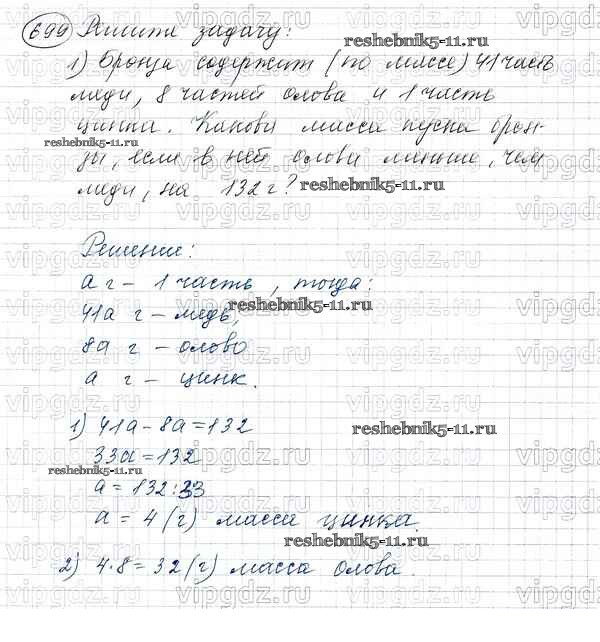 699 Решите задачу:
reshebnik5-11.ru
1) Бронза содержит (по массе) 41 часть
меди, 8 частей олова и 1 часть
цинка. Какова масса куска брон-
reshebnik5-11.ru
зы, если в ней олова меньше, чем
меди, на 132 г?
reshebnik5-11.ru
Решение:
а г - 1 часть, тогда:
reshebnik5-11.ru
41а г - медь,
8а г - олово
а г - цинк.
1) 41а-8а=132
reshebnik5-11.ru
33а=132
reshebnik5-11.ru
а=132:33
а = 4 (г) масса цинка.
reshebnik5-11.ru
2) 4·8=32 (г) масса олова.
vipgdz.ru